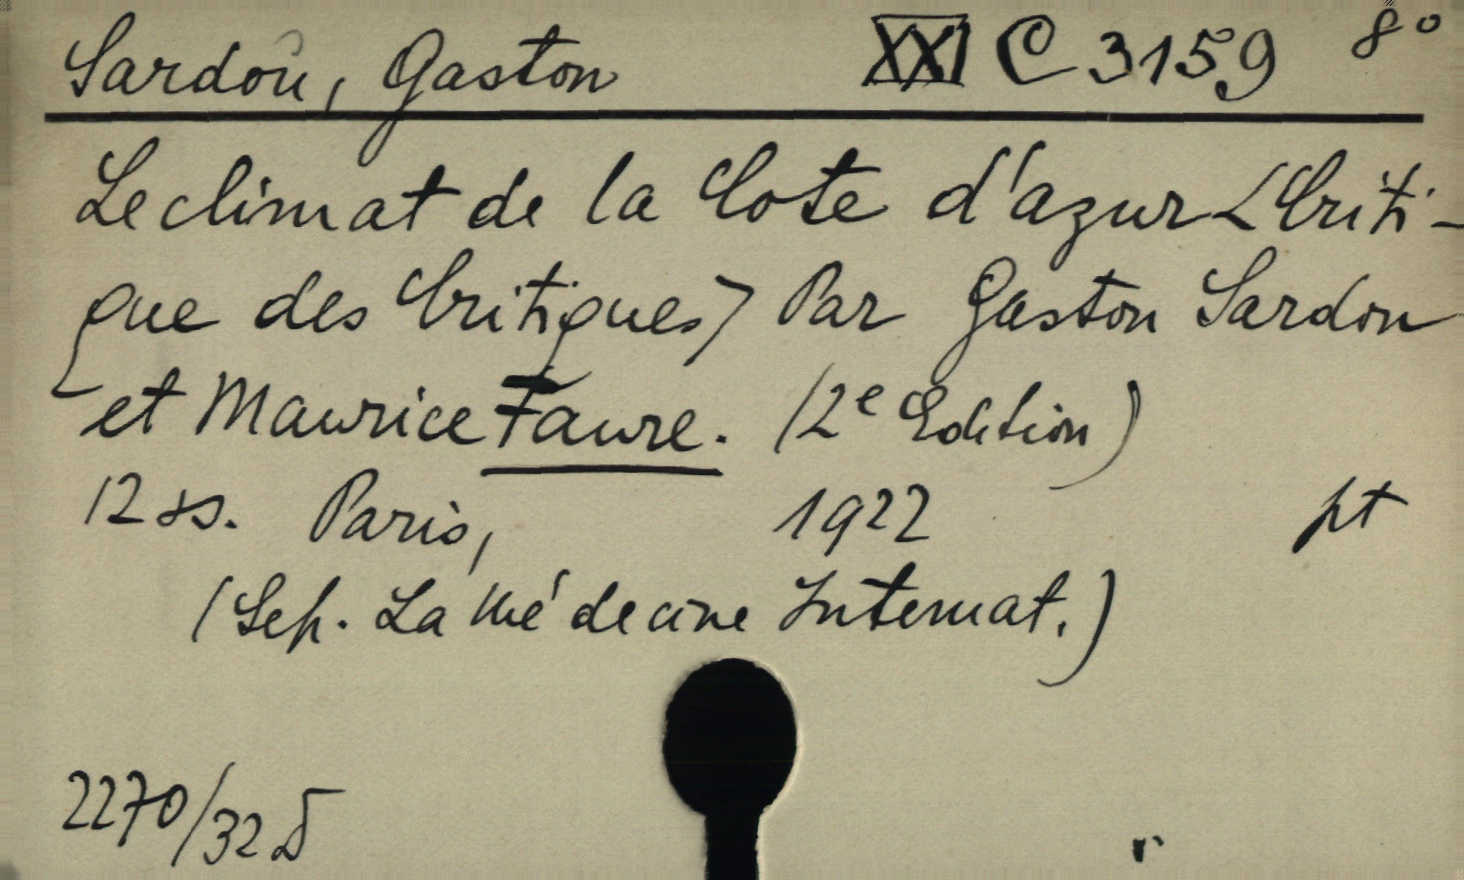 Sardou, Gaston XXI C 3159 8°
Le climat de la Cote d'azur <Criti-
que des Critiques> Par Gaston Sardou
et Maurice Faure. (2e Edition)
12 ss. Paris, 1922 pt
(Sep. La Médecine Internat.)
2270/32 D
r